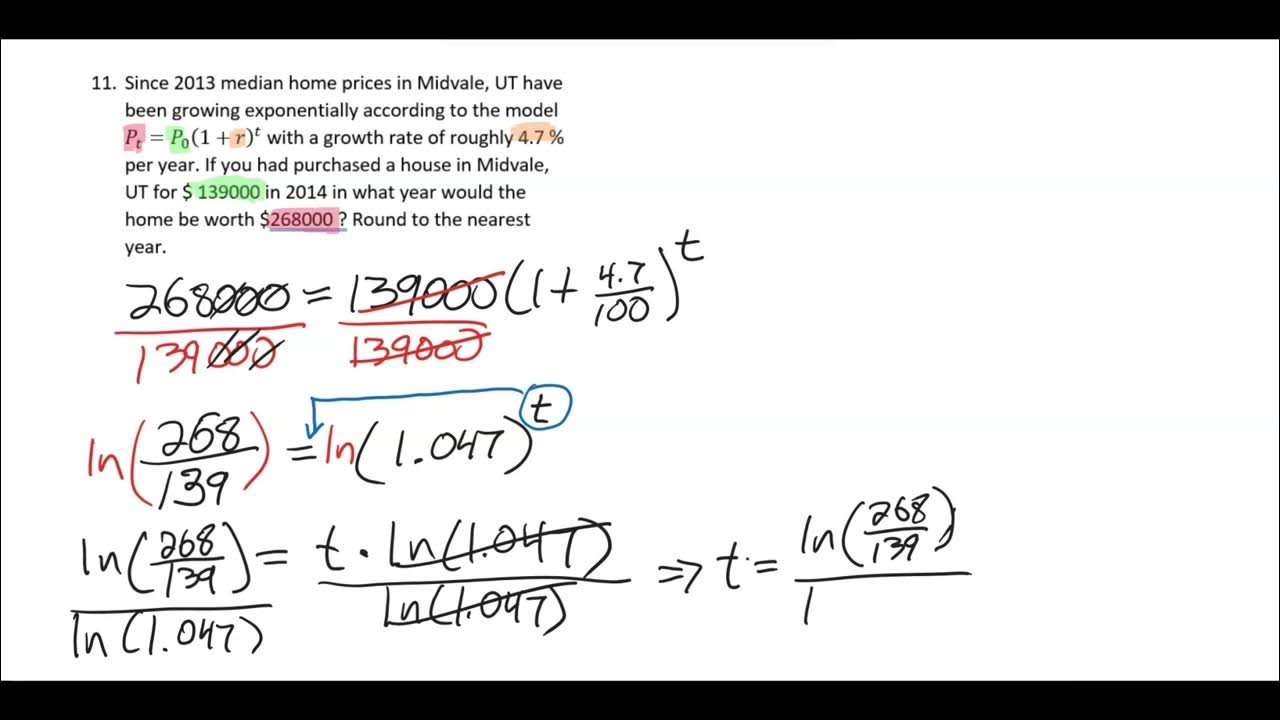 11. Since 2013 median home prices in Midvale, UT have
been growing exponentially according to the model
Pₜ = P₀(1 + r)ᵗ with a growth rate of roughly 4.7 %
per year. If you had purchased a house in Midvale,
UT for $ 139000 in 2014 in what year would the
home be worth $268000 ? Round to the nearest
year.
268000 = 139000(1 + 4.7/100)^t
139000 139000
ln(268/139) = ln(1.047)^t
ln(268/139) = t · ln(1.047) ⇒ t = ln(268/139)
ln(1.047) ln(1.047)